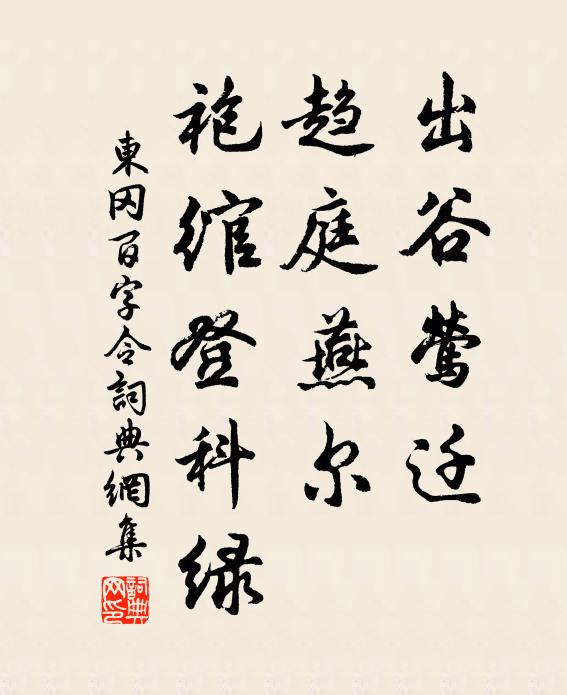 出谷莺迁
趋庭燕尔
袍绾登科绿
東冈百字令詞典網集
詞典网印